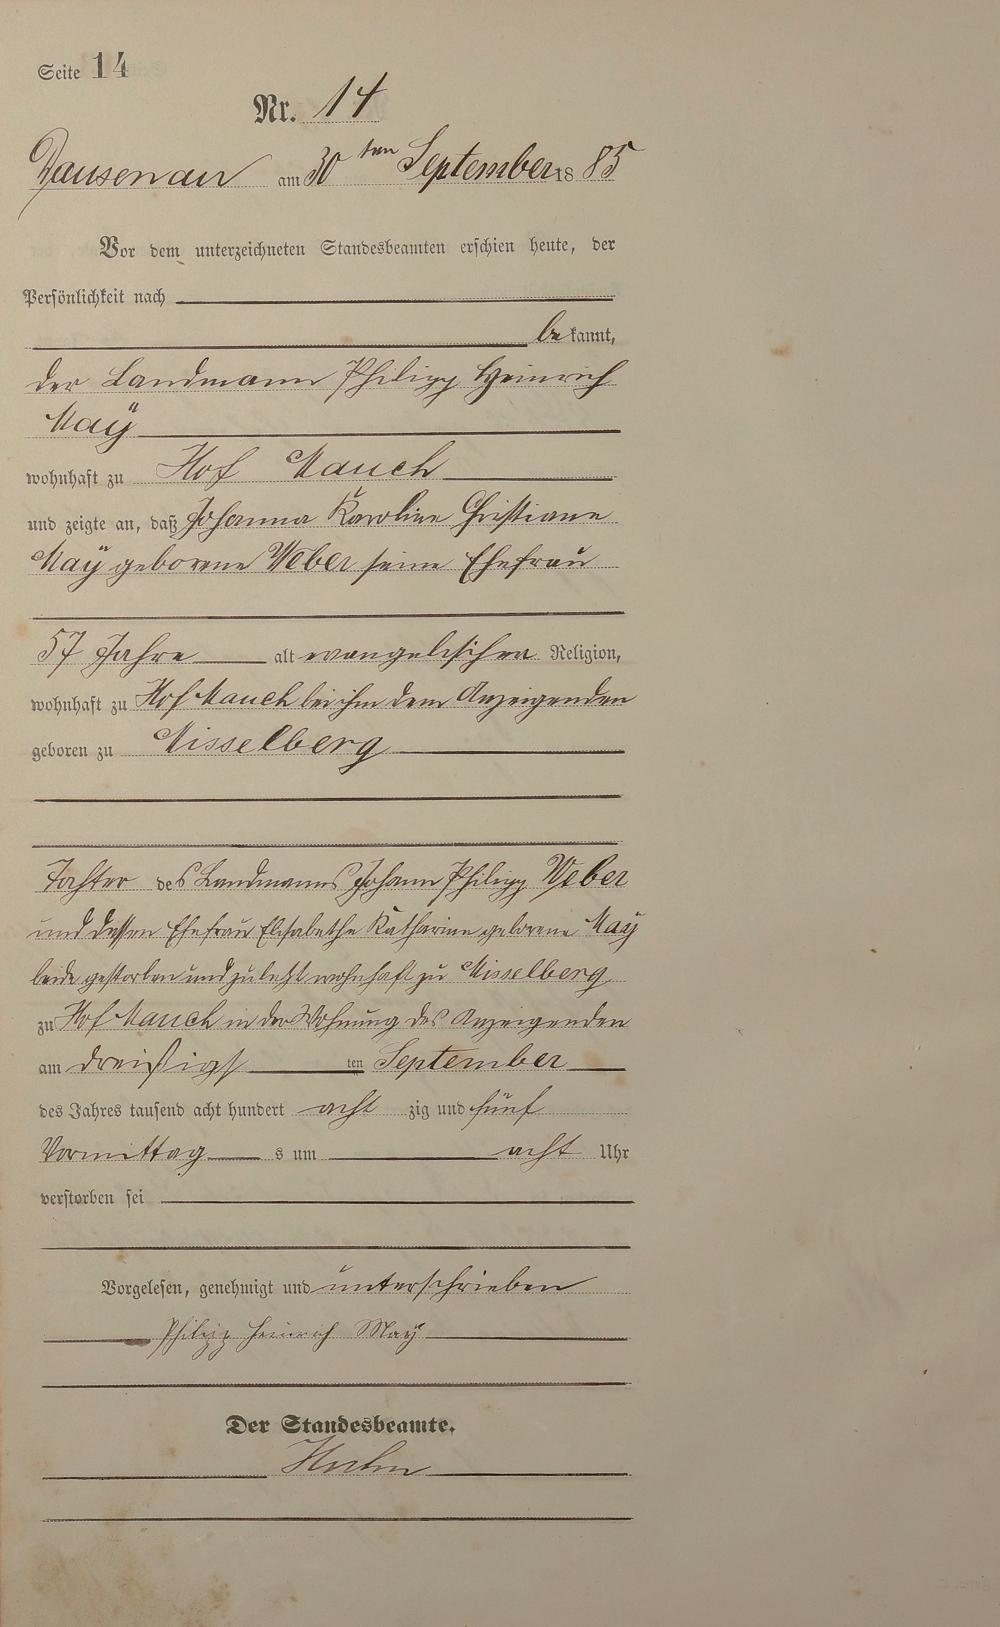 Seite 14
Nr. 14
Dausenau am 30 ten September 18 85
Vor dem unterzeichneten Standesbeamten erschien heute, der
Persönlichkeit nach
be kannt,
der Landmann Philipp Heinrich
Maÿ
wohnhaft zu Hof Mauch
und zeigte an, daß Johanna Karoline Christiane
Maÿ geborene Weber seine Ehefrau
57 Jahre alt evangelischer Religion,
wohnhaft zu Hof Mauch bei ihm dem Anzeigenden
geboren zu Misselberg
Tochter des Landmanns Johann Philipp Weber
und dessen Ehefrau Elisabethe Katharine geborene Maÿ
beide gestorben und zuletzt wohnhaft zu Misselberg
zu Hof Mauch in der Wohnung des Anzeigenden
am dreißigs ten September
des Jahres tausend acht hundert acht zig und fünf
Vormittag s um acht Uhr
verstorben sei
Vorgelesen, genehmigt und unterschrieben
Philipp Heinrich May
Der Standesbeamte.